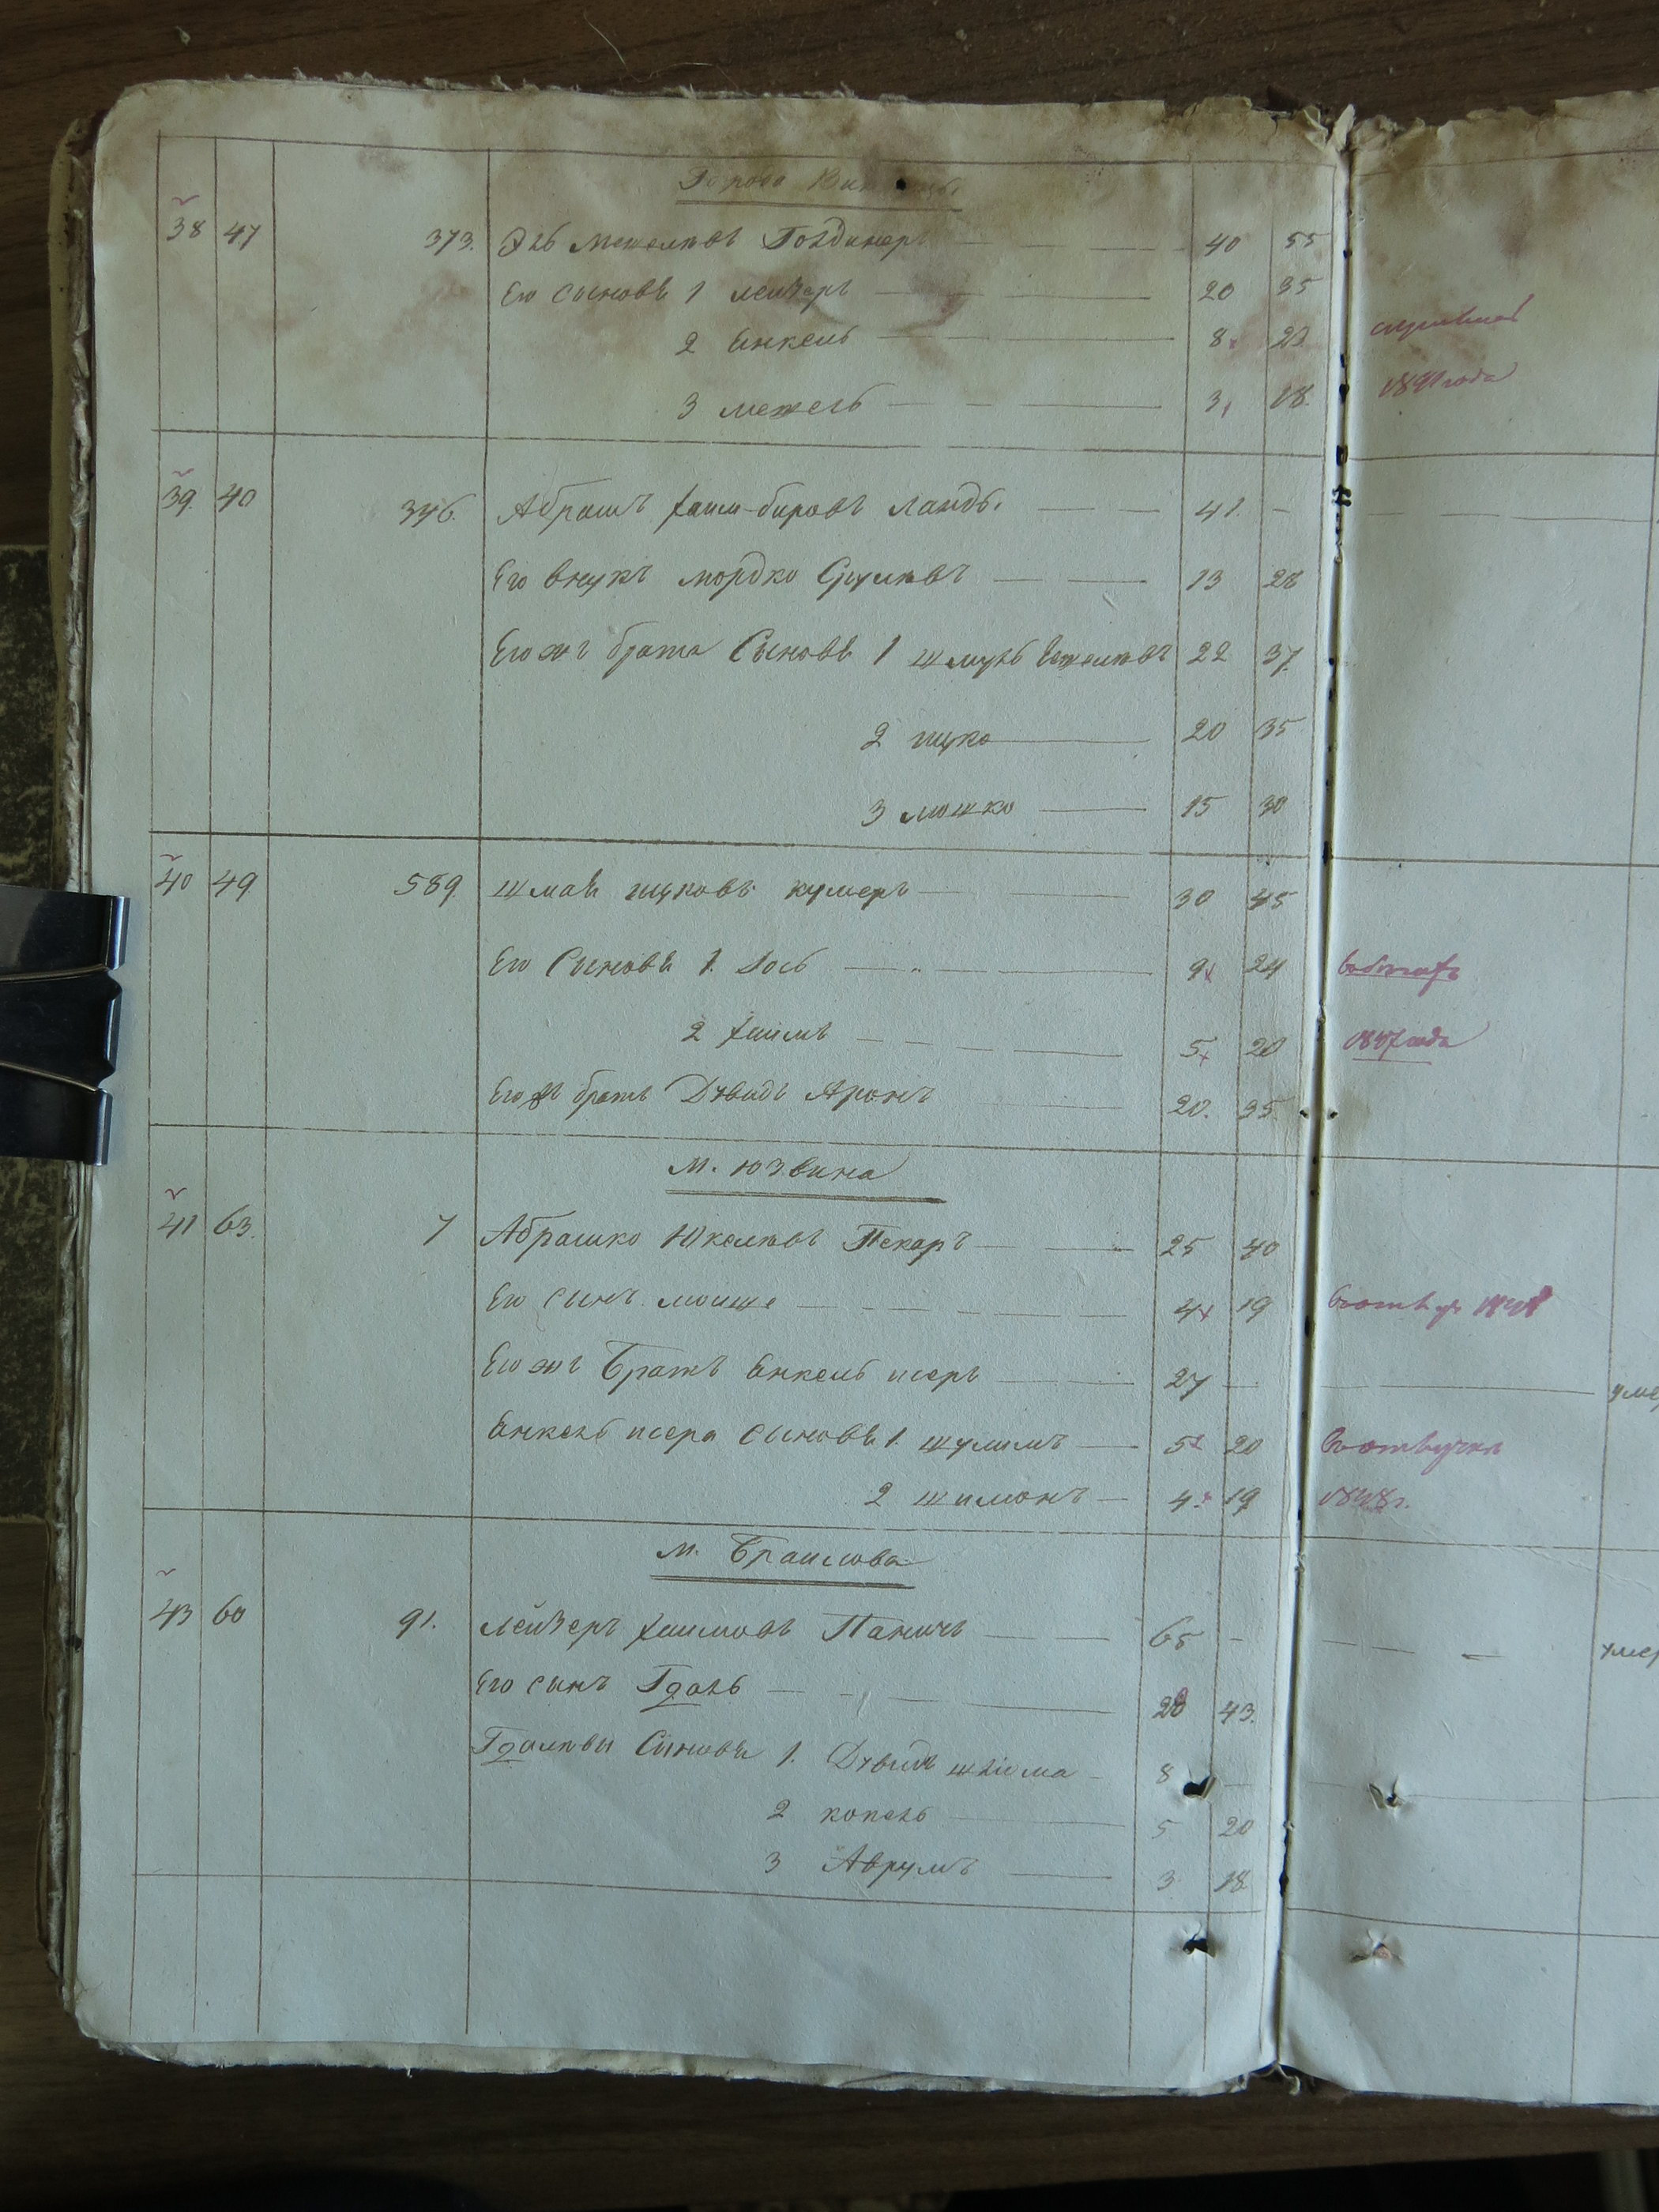 Города Винницы
38 47 373. Эль Мошковъ Голдинеръ 40 55
Его Сыновья 1 Лейзеръ 20 35
2 Янкель 8 23
3 Межель 3 18.
1841 года
39. 40 346. Абрамъ Хаим-Беровъ Ландъ. 41. -
Его внукъ Мордко Срулевъ 13 28
Его жъ брата Сыновья 1 Шмуль 22 37.
2 Ицко 20 35
3 Мошко 15 30
40 49 589. Шмая Ицковъ 30 45
Его Сыновья 1. Іось 9 24
2 Хаимъ 5 20
1847 года
Его жъ братъ Дувидъ Аронъ 20. 35.
М. Юзвина
41 63. 7 Абрашко Юкелевъ Пекаръ 25 40
Его сынъ Моише 4 19
Его жъ Братъ Янкель Исеръ 27 -
Янкель Исера Сыновья 1. Шулимъ 5 20 въ отлучке
2 Шимонъ 4 19 1848 г.
М. Браилова
43 60 91. Лейзеръ Хаимовъ Паничъ 65 -
Его сынъ Гдаль 28 43.
Гдалевы Сыновья 1. Дувидъ Шлиома 8 -
2 Копель 5 20
3 Аврумъ 3 18